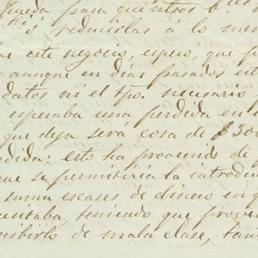 para que otros
reducirlas á lo men
este negocio, espero, que p
aunque en dias pasados est
datos ni el tpo. necesario
esperaba una perdida en
que deja será cosa de $500
edida: esto ha provenido de
se permitiria la introdu
suma escases de dinero en
contaba, teniendo que prove
cibirlo de mala clase, tan